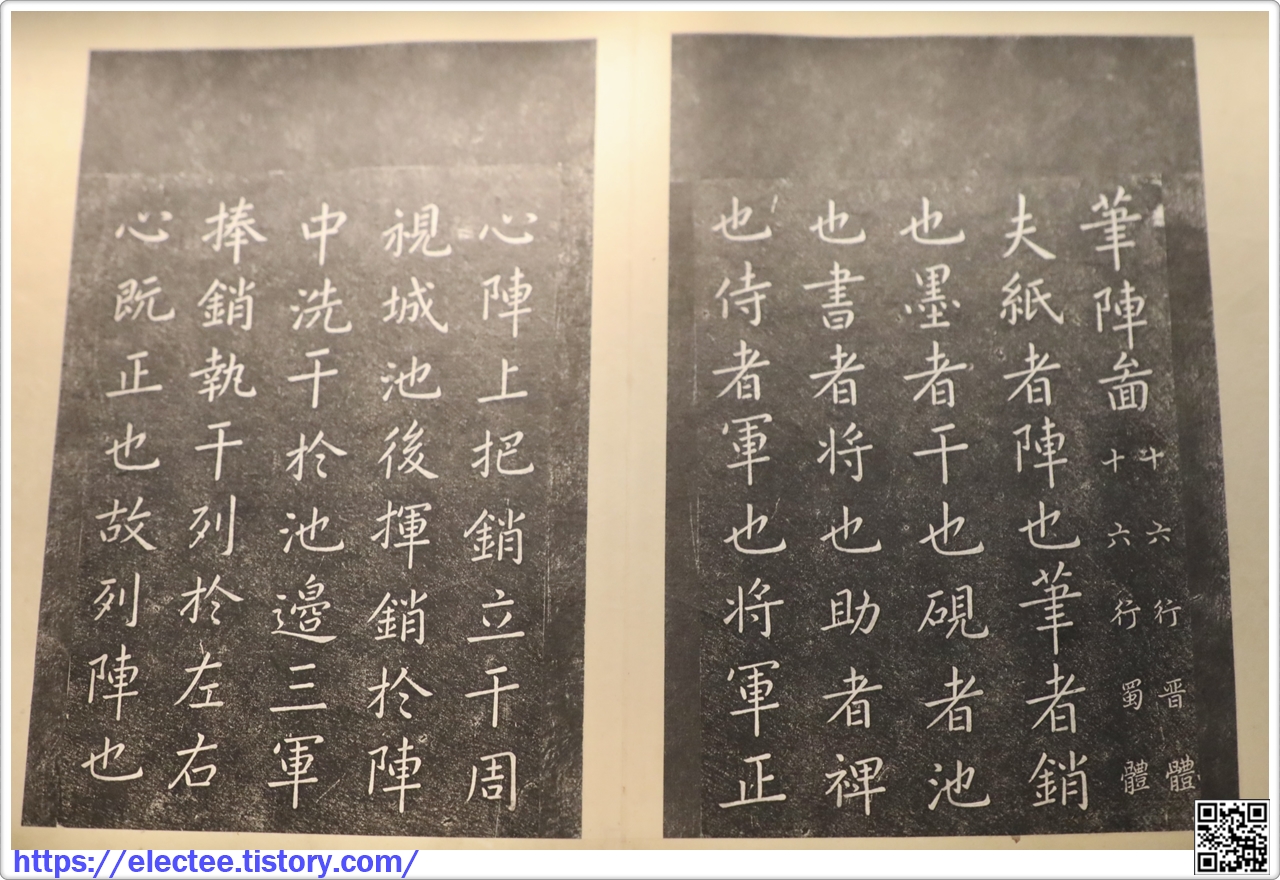 筆陣啚
十六行晋體
十六行蜀體
夫紙者陣也筆者銷
也墨者干也硯者池
也書者将也助者裨
也侍者軍也将軍正
心陣上把銷立干周
視城池後揮銷扵陣
中洗干扵池邊三軍
捧銷執干列扵左右
心既正也故列陣也
https://electee.tistory.com/